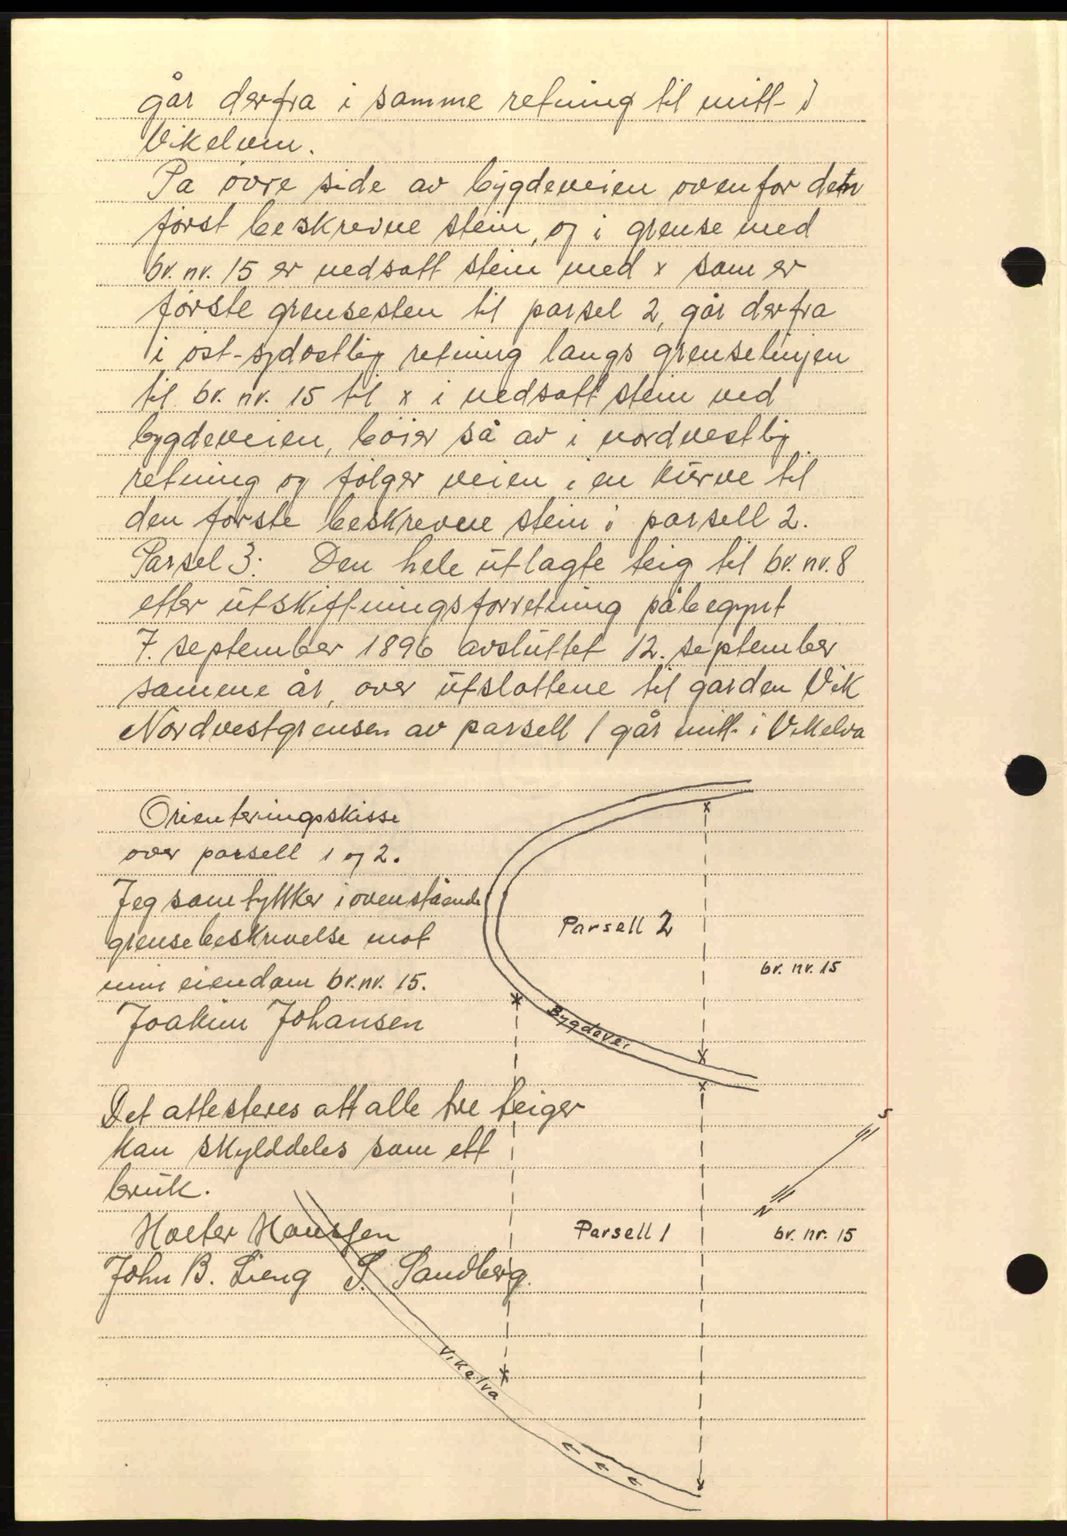 går derfra i samme retning til mitt i
Vikelven.
På øvre side av bygdeveien ovenfor den
først beskrevne stein, og i grense med
br. nr. 15 er nedsatt stein med x som er
første grensesten til parsel 2, går derfra
i øst-sydøstlig retning langs grenselinjen
til br. nr. 15 til x i nedsatt stein ved
bygdeveien, bøier så av i nordvestlig
retning og følger veien i en kurve til
den første beskrevne stein i parsell 2.
Parsel 3: Den hele utlagte teig til br. nr. 8
efter utskiftningsforretning påbegynt
7. september 1896 avsluttet 12. september
samme år, over utslåttene til garden Vik
Nordvestgrensen av parsell 1 går mitt i Vikelva
Orienteringsskisse
over parsell 1 og 2.
Jeg samtykker i ovenstående
grensebeskrivelse mot
min eiendom br. nr. 15.
Joakim Johansen
Parsell 2
br. nr. 15
Bygdevei
Det attesteres att alle tre teiger
kan skylddeles som ett
bruk.
S
N
Parsell 1
br. nr. 15
Holter Hanssen
John B. Lieng S. Sandberg.
Vikelva